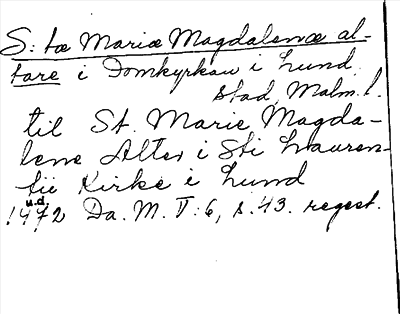 S:tæ Mariæ Magdalenæ al-
tare i Domkyrkan i Lund.
stad, Malm. l.
til St. Marie Magda-
lene Alter i Sti Lauren-
tii Kirke i Lund
u.d.
1472 Da. M. V:6, s.43. regest.